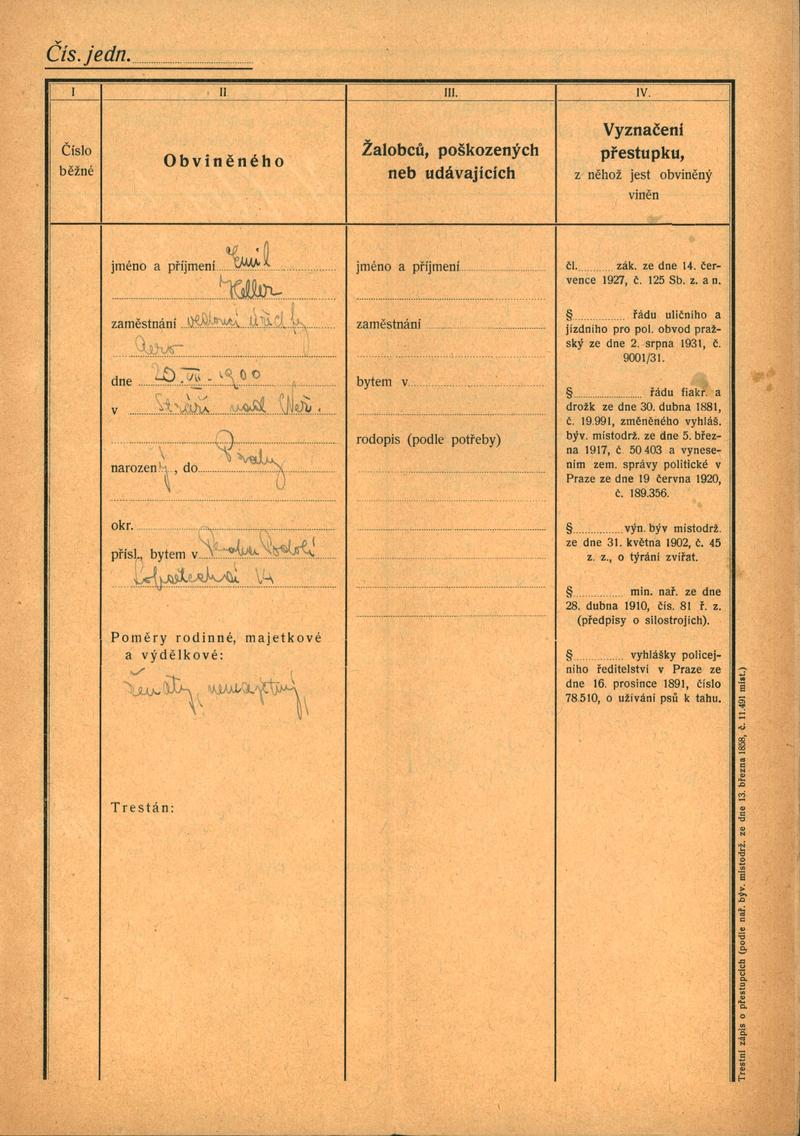 Čís. jedn.
I
II
III.
IV.
Číslo
běžné
Obviněného
Žalobců, poškozených
neb udávajících
Vyznačení
přestupku,
z něhož jest obviněný
viněn
jméno a příjmení Emil
Heller
zaměstnání vedoucí
Aero
dne 20. VII. 1900
v Stráži nad Než.
narozený, do Prahy
okr.
přísl., bytem v Podolí
Poměry rodinné, majetkové
a výdělkové:
Ženatý, nemajetný
Trestán:
jméno a příjmení
zaměstnání
bytem v
rodopis (podle potřeby)
čl. zák. ze dne 14. čer-
vence 1927, č. 125 Sb. z. a n.
§ řádu uličního a
jízdního pro pol. obvod praž-
ský ze dne 2. srpna 1931, č.
9001/31.
§ řádu fiakr. a
drožk ze dne 30. dubna 1881,
č. 19.991, změněného vyhláš.
býv. místodrž. ze dne 5. břez-
na 1917, č. 50 403 a vynese-
ním zem. správy politické v
Praze ze dne 19 června 1920,
č. 189.356.
§ výn. býv místodrž.
ze dne 31. května 1902, č. 45
z. z., o týrání zvířat.
§ min. nař. ze dne
28. dubna 1910, čís. 81 ř. z.
(předpisy o silostrojích).
§ vyhlášky policej-
ního ředitelství v Praze ze
dne 16. prosince 1891, číslo
78.510, o užívání psů k tahu.
Trestní zápis o přestupcích (podle nař. býv. místodrž. ze dne 13. března 1858, č. 11.491 míst.)